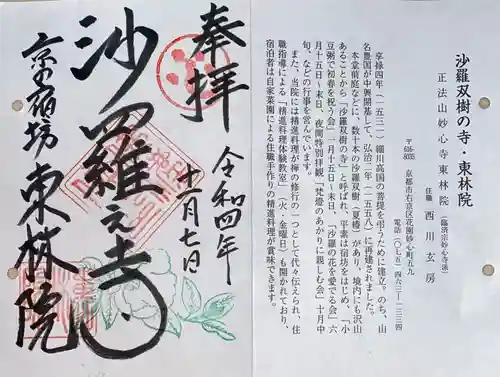 沙羅双樹の寺・東林院
正法山妙心寺東林院(臨済宗妙心寺派)
住職 西川玄房
〒616-8035 京都市右京区花園妙心町五九
電話(〇七五)四六三ー一三三四
享禄四年(一五三一)細川高国の菩提を弔うために建立。のち、山
名豊国が中興開基して、弘治二年(一五五六)に再建されました。
本堂前庭などに、数十本の沙羅双樹(夏椿)があり、境内にも沢山
あることから「沙羅双樹の寺」と呼ばれ、平素は宿坊をはじめ、「小
豆粥で初春を祝う会」一月十五日〜末日、「沙羅の花を愛でる会」六
月十五日〜末日、夜間特別拝観「梵燈のあかりに親しむ会」十月中
旬、などの行事を営んでいます。
また、当院には精進料理が禅の修行の一つとして代々伝えられ、住
職指導による「精進料理体験教室」(火・金曜日)も開かれており、
宿泊者は自家菜園による住職手作りの精進料理が賞味できます。
奉拝
令和四年
十一月七日
沙羅之寺
京の宿坊 東林院